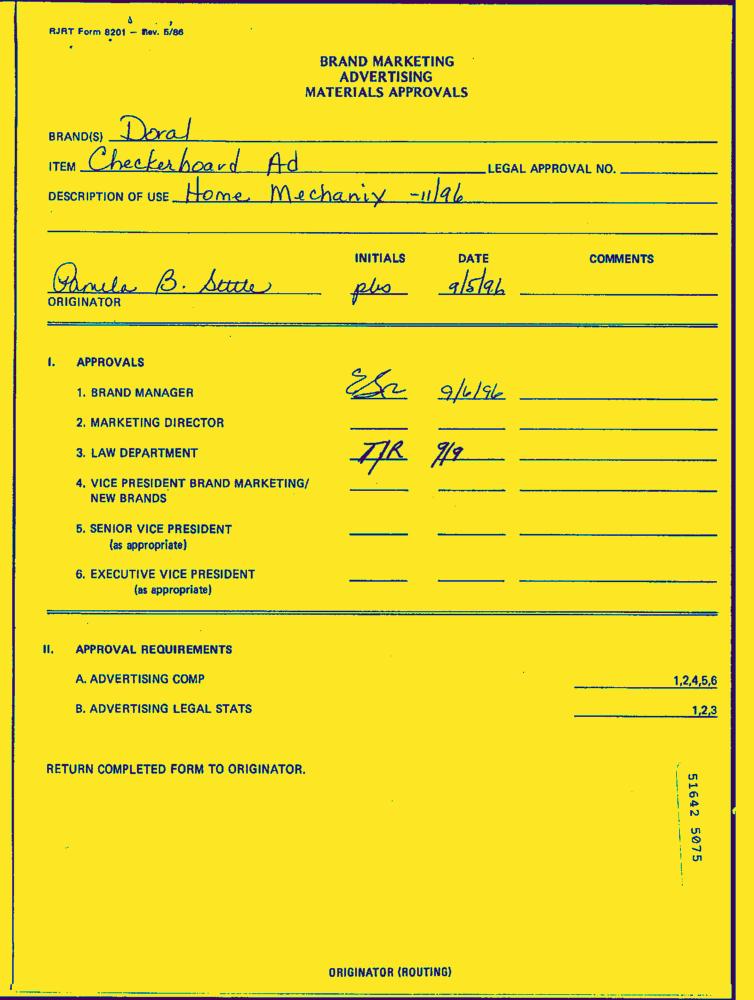 RJRT Form 8201 — Rev. 5/86
BRAND MARKETING
ADVERTISING
MATERIALS APPROVALS
BRAND(S) Doral
ITEM Checkerboard Ad LEGAL APPROVAL NO.
DESCRIPTION OF USE Home Mechanix -11/96
INITIALS DATE COMMENTS
Pamela B. pbs 9/5/96
ORIGINATOR
I. APPROVALS
1. BRAND MANAGER 9/6/96
2. MARKETING DIRECTOR
3. LAW DEPARTMENT TJR 9/9
4. VICE PRESIDENT BRAND MARKETING/
NEW BRANDS
5. SENIOR VICE PRESIDENT
(as appropriate)
6. EXECUTIVE VICE PRESIDENT
(as appropriate)
II. APPROVAL REQUIREMENTS
A. ADVERTISING COMP 1,2,4,5,6
B. ADVERTISING LEGAL STATS 1,2,3
RETURN COMPLETED FORM TO ORIGINATOR.
51642 5075
ORIGINATOR (ROUTING)